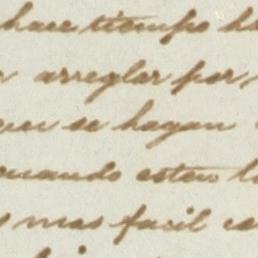 hace tiempo
arreglar por
se hagan
cuando esten
mas facil